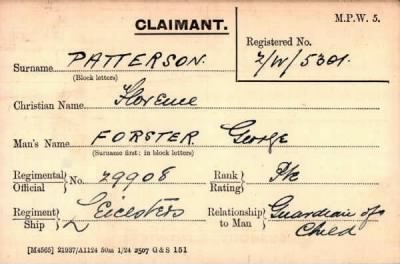 CLAIMANT.
M.P.W. 5.
Registered No.
2/W/5301.
Surname PATTERSON.
(Block letters)
Christian Name Florence
Man's Name FORSTER George
(Surname first: in block letters)
Regimental Official } No. 29908 Rank Rating } Pte
Regiment Ship } Leicesters Relationship to Man } Guardian of Child
[M4565] 21937/A1124 50m 1/24 2507 G & S 151